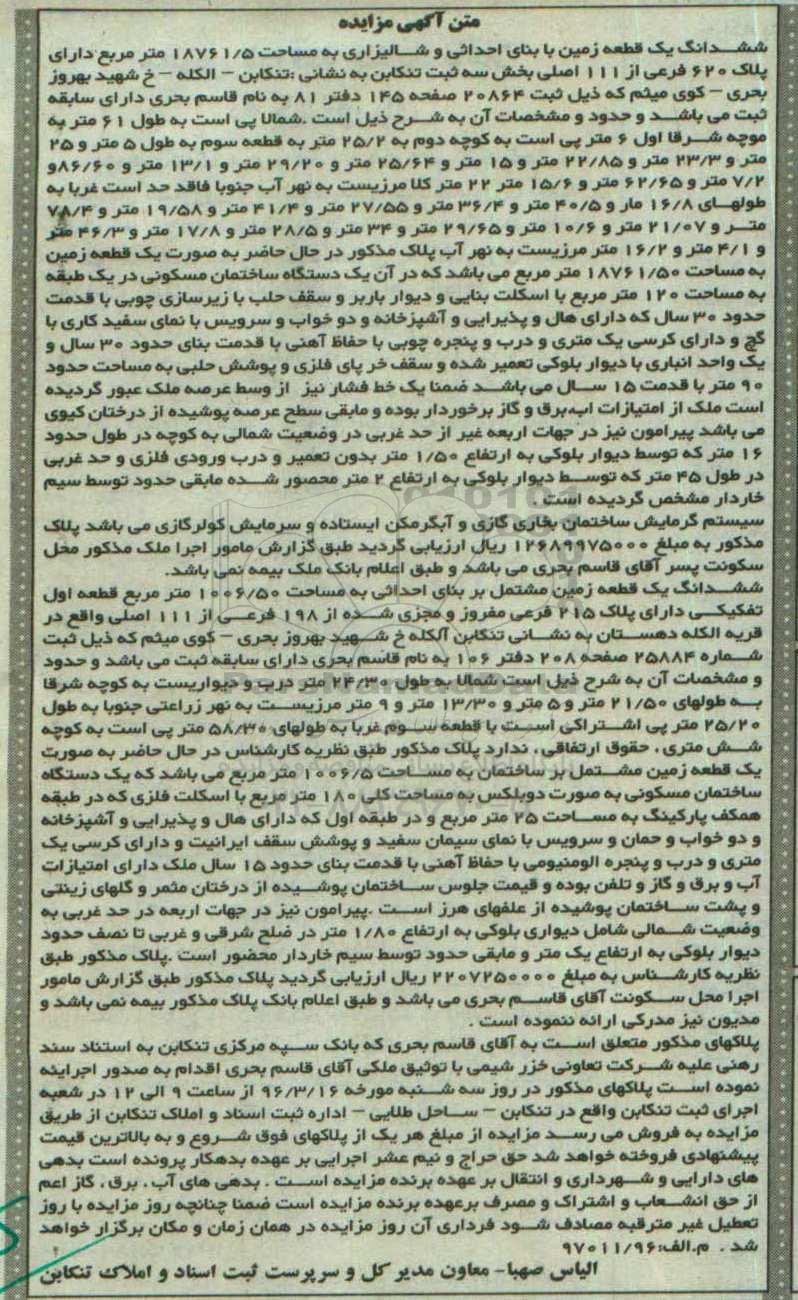 متن آگهی مزایده
ششدانگ یک قطعه زمین با بنای احداثی و شالیزاری به مساحت ۱۸۷۶۱/۵ متر مربع دارای
پلاک ۶۲۰ فرعی از ۱۱۱ اصلی بخش سه ثبت تنکابن به نشانی :تنکابن – الکله – خ شهید بهروز
بحری – کوی میثم که ذیل ثبت ۲۰۸۶۴ صفحه ۱۴۵ دفتر ۸۱ به نام قاسم بحری دارای سابقه
ثبت می باشد و حدود و مشخصات آن به شرح ذیل است .شمالا پی است به طول ۶۱ متر به
موچه شرقا اول ۶ متر پی است به کوچه دوم به ۲۵/۲ متر به قطعه سوم به طول ۵ متر و ۲۵
متر و ۲۳/۳ متر و ۲۲/۸۵ متر و ۱۵ متر و ۲۵/۶۴ متر و ۲۹/۲۰ متر و ۱۳/۱ متر و ۸۶/۶۰و
۷/۲ متر و ۶۲/۶۵ متر و ۱۵/۶ متر ۲۲ متر کلا مرزیست به نهر آب جنوبا فاقد حد است غربا به
طولهای ۱۶/۸ مار و ۴۰/۵ متر و ۳۶/۴ متر و ۲۷/۵۵ متر و ۴۱/۴ متر و ۱۹/۵۸ متر و ۷۸/۴
متر و ۲۱/۰۷ متر و ۱۰/۶ متر و ۲۹/۶۵ متر و ۳۴ متر و ۲۸/۵ متر و ۱۷/۸ متر و ۴۶/۳ متر
و ۴/۱ متر و ۱۶/۲ متر مرزیست به نهر آب پلاک مذکور در حال حاضر به صورت یک قطعه زمین
به مساحت ۱۸۷۶۱/۵۰ متر مربع می باشد که در آن یک دستگاه ساختمان مسکونی در یک طبقه
به مساحت ۱۲۰ متر مربع با اسکلت بنایی و دیوار باربر و سقف حلب با زیرسازی چوبی با قدمت
حدود ۳۰ سال که دارای هال و پذیرایی و آشپزخانه و دو خواب و سرویس با نمای سفید کاری با
گچ و دارای کرسی یک متری و درب و پنجره چوبی با حفاظ آهنی با قدمت بنای حدود ۳۰ سال و
یک واحد انباری با دیوار بلوکی تعمیر شده و سقف خر پای فلزی و پوشش حلبی به مساحت حدود
۹۰ متر با قدمت ۱۵ سال می باشد ضمنا یک خط فشار نیز از وسط عرصه ملک عبور گردیده
است ملک از امتیازات اب،برق و گاز برخوردار بوده و مابقی سطح عرصه پوشیده از درختان کیوی
می باشد پیرامون نیز در جهات اربعه غیر از حد غربی در وضعیت شمالی به کوچه در طول حدود
۱۶ متر که توسط دیوار بلوکی به ارتفاع ۱/۵۰ متر بدون تعمیر و درب ورودی فلزی و حد غربی
در طول ۴۵ متر که توسط دیوار بلوکی به ارتفاع ۲ متر محصور شده مابقی حدود توسط سیم
خاردار مشخص گردیده است .
سیستم گرمایش ساختمان بخاری گازی و آبگرمکن ایستاده و سرمایش کولرگازی می باشد پلاک
مذکور به مبلغ ۱۲۶۸۹۹۷۵۰۰۰ ریال ارزیابی گردید طبق گزارش مامور اجرا ملک مذکور محل
سکونت پسر آقای قاسم بحری می باشد و طبق اعلام بانک ملک بیمه نمی باشد.
ششدانگ یک قطعه زمین مشتمل بر بنای احداثی به مساحت ۱۰۰۶/۵۰ متر مربع قطعه اول
تفکیکی دارای پلاک ۲۱۵ فرعی مفروز و مجزی شده از ۱۹۸ فرعی از ۱۱۱ اصلی واقع در
قریه الکله دهستان به نشانی تنکابن آلکله خ شهید بهروز بحری – کوی میثم که ذیل ثبت
شماره ۲۵۸۸۴ صفحه ۲۰۸ دفتر ۱۰۶ به نام قاسم بحری دارای سابقه ثبت می باشد و حدود
و مشخصات آن به شرح ذیل است شمالا به طول ۲۴/۳۰ متر درب و دیواریست به کوچه شرقا
به طولهای ۲۱/۵۰ متر و ۵ متر و ۱۳/۳۰ متر و ۹ متر مرزیست به نهر زراعتی جنوبا به طول
۲۵/۲۰ متر پی اشتراکی است با قطعه سوم غربا به طولهای ۵۸/۳۰ متر پی است به کوچه
شش متری ، حقوق ارتفاقی ، ندارد پلاک مذکور طبق نظریه کارشناس در حال حاضر به صورت
یک قطعه زمین مشتمل بر ساختمان به مساحت ۱۰۰۶/۵ متر مربع می باشد که یک دستگاه
ساختمان مسکونی به صورت دوبلکس به مساحت کلی ۱۸۰ متر مربع با اسکلت فلزی که در طبقه
همکف پارکینگ به مساحت ۲۵ متر مربع و در طبقه اول که دارای هال و پذیرایی و آشپزخانه
و دو خواب و حمان و سرویس با نمای سیمان سفید و پوشش سقف ایرانیت و دارای کرسی یک
متری و درب و پنجره الومنیومی با حفاظ آهنی با قدمت بنای حدود ۱۵ سال ملک دارای امتیازات
آب و برق و گاز و تلفن بوده و قیمت جلوس ساختمان پوشیده از درختان مثمر و گلهای زینتی
و پشت ساختمان پوشیده از علفهای هرز است .پیرامون نیز در جهات اربعه در حد غربی به
وضعیت شمالی شامل دیواری بلوکی به ارتفاع ۱/۸۰ متر در ضلع شرقی و غربی تا نصف حدود
دیوار بلوکی به ارتفاع یک متر و مابقی حدود توسط سیم خاردار محضور است .پلاک مذکور طبق
نظریه کارشناس به مبلغ ۲۲۰۷۲۵۰۰۰۰ ریال ارزیابی گردید پلاک مذکور طبق گزارش مامور
اجرا محل سکونت آقای قاسم بحری می باشد و طبق اعلام بانک پلاک مذکور بیمه نمی باشد و
مدیون نیز مدرکی ارائه ننموده است .
پلاکهای مذکور متعلق است به آقای قاسم بحری که بانک سپه مرکزی تنکابن به استناد سند
رهنی علیه شرکت تعاونی خزر شیمی با توثیق ملکی آقای قاسم بحری اقدام به صدور اجرایئه
نموده است پلاکهای مذکور در روز سه شنبه مورخه ۹۶/۳/۱۶ از ساعت ۹ الی ۱۲ در شعبه
اجرای ثبت تنکابن واقع در تنکابن – ساحل طلایی – اداره ثبت اسناد و املاک تنکابن از طریق
مزایده به فروش می رسد مزایده از مبلغ هر یک از پلاکهای فوق شروع و به بالاترین قیمت
پیشنهادی فروخته خواهد شد حق حراج و نیم عشر اجرایی بر عهده بدهکار پرونده است بدهی
های دارایی و شهرداری و انتقال بر عهده برنده مزایده است . بدهی های آب ، برق ، گاز اعم
از حق انشعاب و اشتراک و مصرف برعهده برنده مزایده است ضمنا چنانچه روز مزایده با روز
تعطیل غیر مترقبه مصادف شود فرداری آن روز مزایده در همان زمان و مکان برگزار خواهد
شد . م.الف:۹۷۰۱۱/۹۶
الیاس صهبا- معاون مدیر کل و سرپرست ثبت اسناد و املاک تنکابن